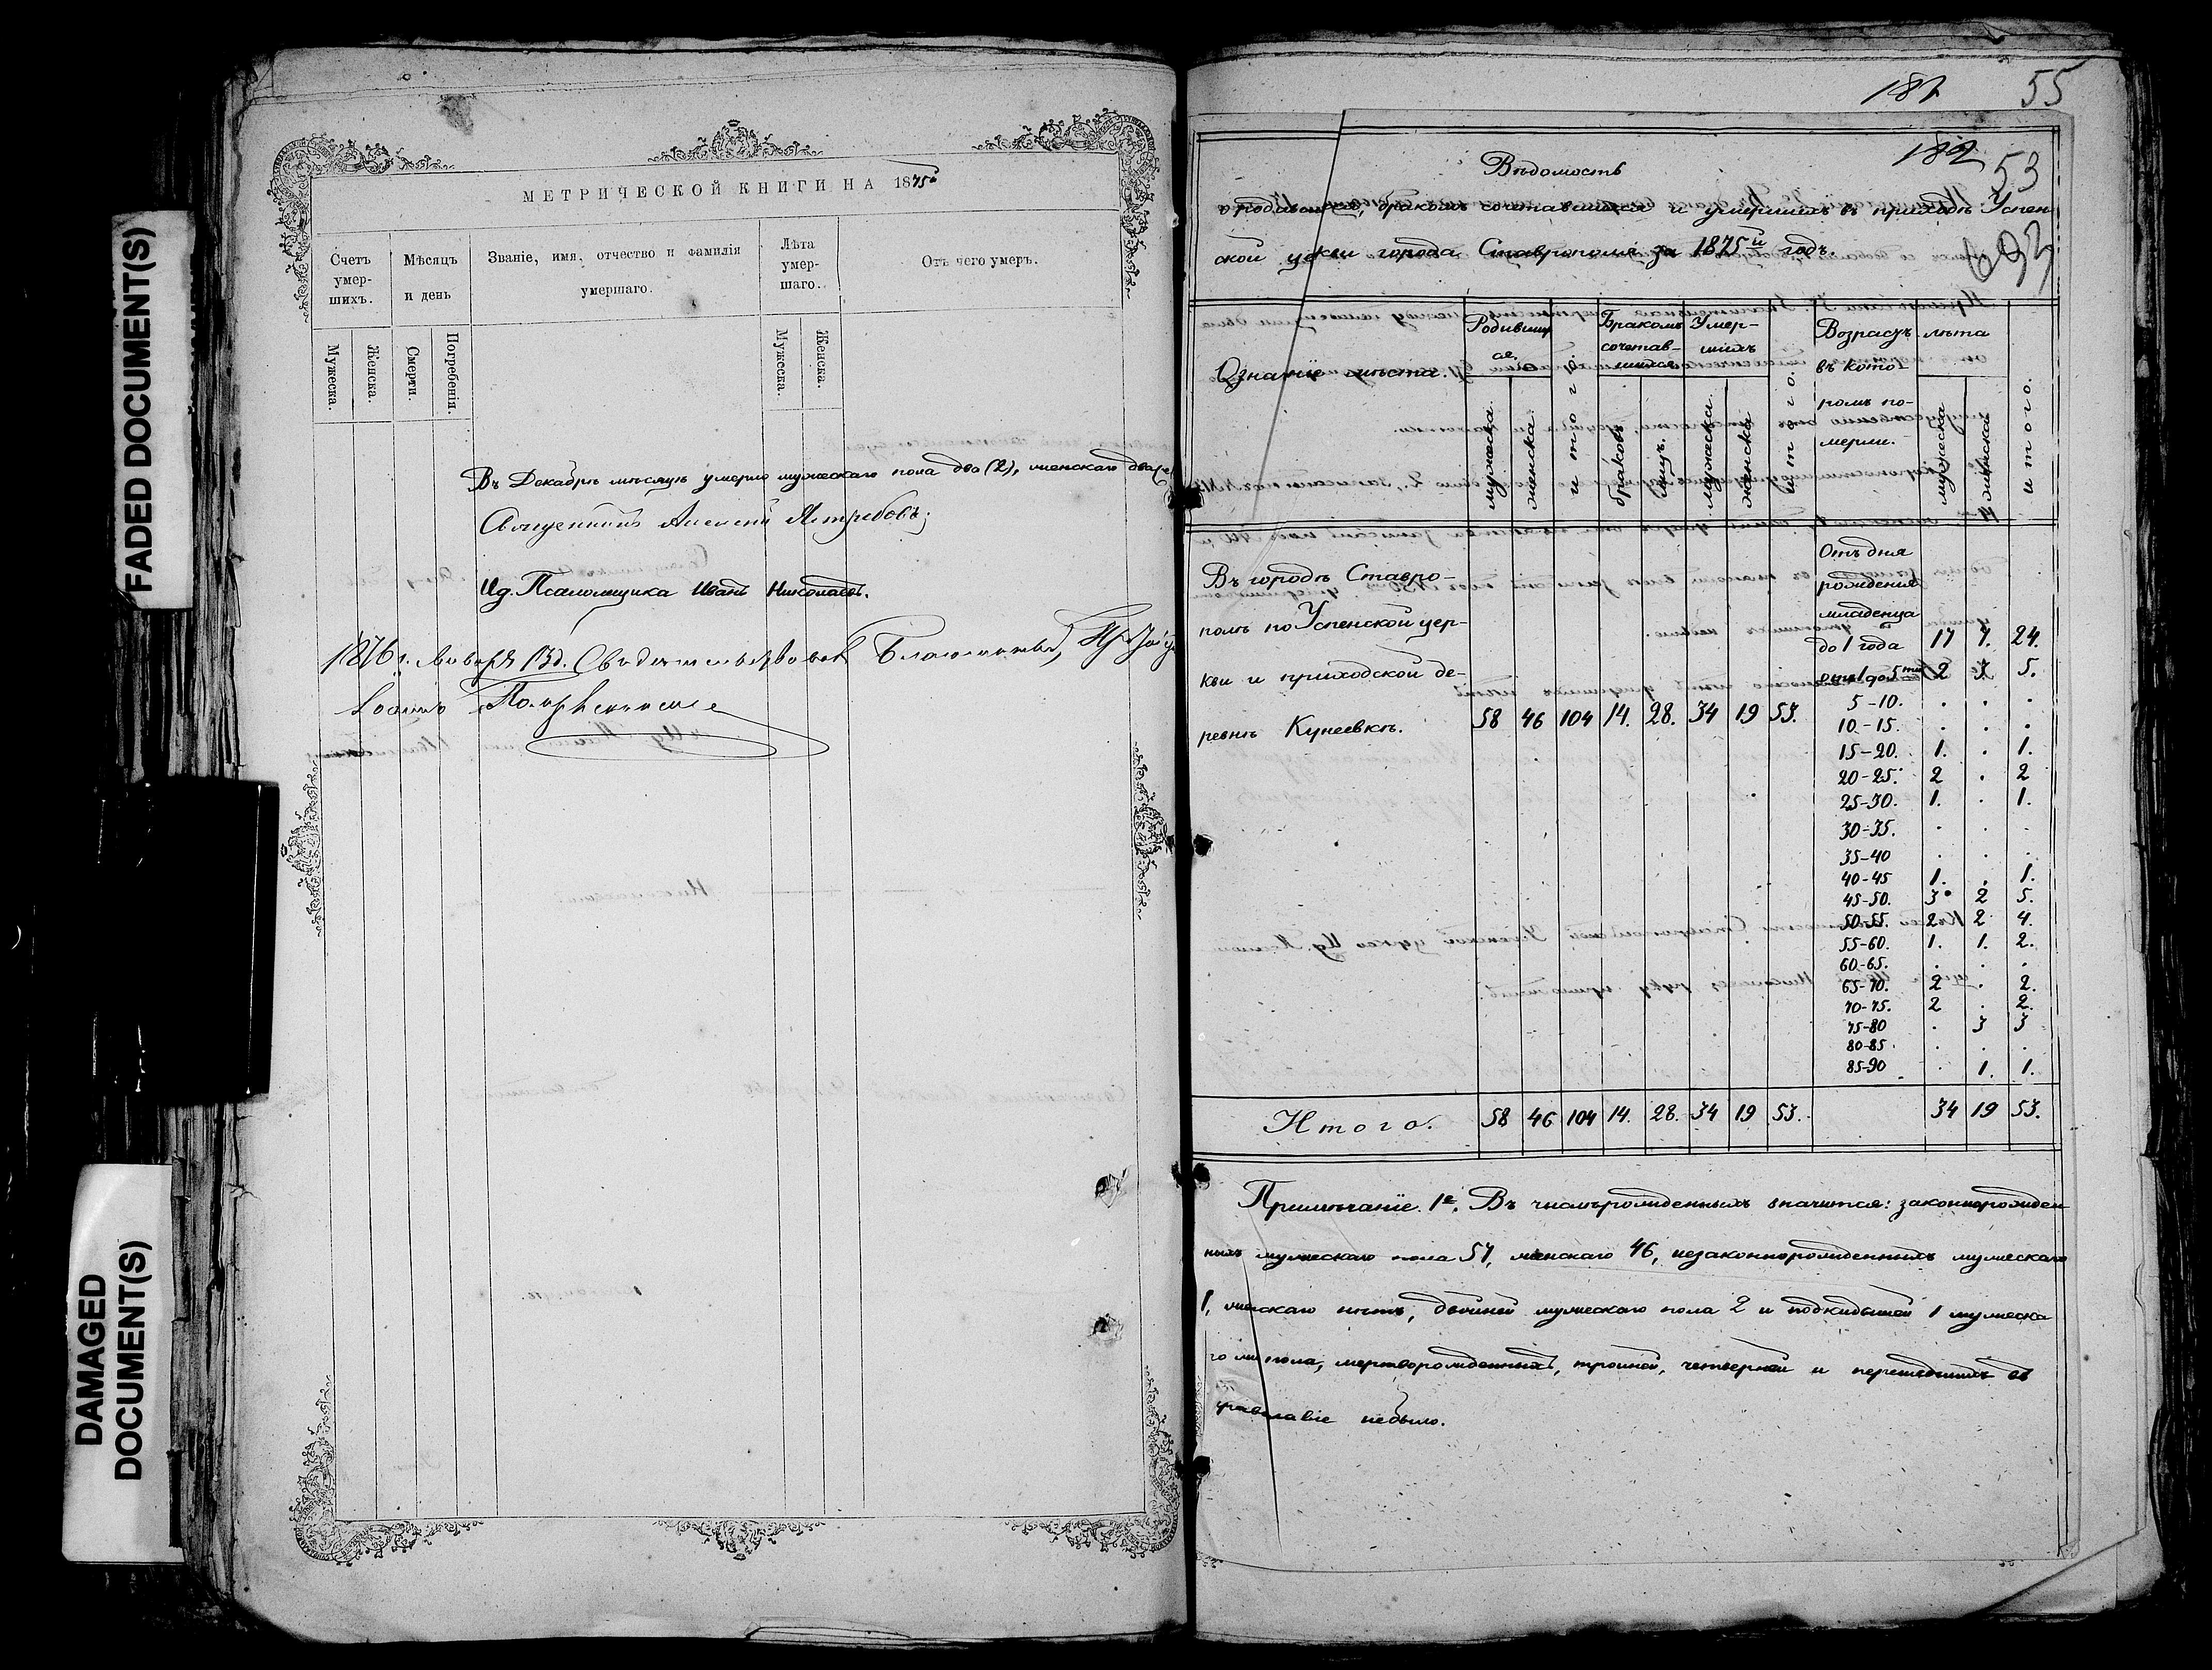 FADED DOCUMENT(S)
DAMAGED
DOCUMENT(S)
МЕТРИЧЕСКОЙ КНИГИ НА 1875й
Счетъ умер-шихъ.
Мѣсяцъ и день
Званіе, имя, отчество и фамилія умершаго.
Лѣта умер-шаго.
Отъ чего умеръ.
Мужеска.
Женска.
Смерти.
Погребенія.
Мужеска.
Женска.
Въ Декабрѣ мѣсяцѣ умерло мужескаго пола два (2), женскаго два
Священникъ Алексій Ястребовъ;
Ид. Псаломщика Иванъ Николаевъ.
1876 г. Января 13 д. Свидѣтельствовалъ Благочинный,
Іоаннъ
182 55
182 53
Вѣдомость
о родившихся, бракомъ сочетавшихся и умершихъ въ приходѣ Успен
ской церкви города Ставрополя за 1875й годъ.
Означеніе мѣста.
Родивших ся.
мужеска.
женска.
итого.
Бракомъ сочетав-шихся
браковъ.
лицъ.
Умер-шихъ
мужеска.
женска
итого.
Возрастъ въ кото-ромъ по-мерли.
лѣта
мужеска
женска
итого.
Въ городѣ Ставро-
полѣ по Успенской цер-
кви и приходской де-
ревнѣ Кунеевкѣ.
58 46 104 14. 28. 34 19 53.
Отъ дня
рожденія
младенца
до 1 года 17 7. 24.
отъ 1 до 5ти 2 3 5.
5-10. . . .
10-15. . . .
15-20. 1. . 1.
20-25. 2 . 2
25-30. 1. . 1.
30-35. . . .
35-40 . . .
40-45 1. . 1.
45-50. 3 2 5.
50-55. 2 2 4.
55-60. 1. 1. 2.
60-65. . . .
65-70. 2 . 2.
70-75. 2 . 2.
75-80 . 3 3
80-85. . . .
85-90 . 1. 1.
Итого. 58 46 104 14. 28. 34 19 53. 34 19 53.
Примѣчаніе. 1е. Въ числѣ рожденныхъ значится: законнорожден
ныхъ мужескаго пола 57, женскаго 46, незаконнорожденныхъ мужескаго
1, женскаго нѣтъ, двойней мужескаго пола 2 и подкидышей 1 мужеска
го пола, мертворожденныхъ, тройней, четверней и перешедшихъ въ
православіе небыло.